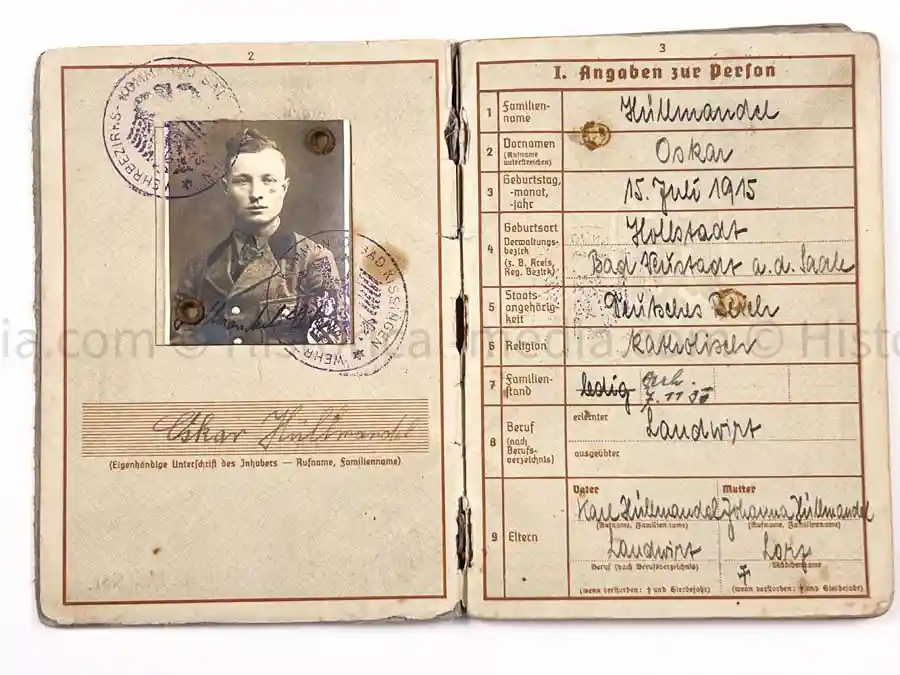 2
WEHRBEZIRKS-KOMMANDO BAD KISSINGEN
KOMMANDO BAD-KISSINGEN * WEHR
Oskar Hüllmandel
(Eigenhändige Unterschrift des Inhabers — Rufname, Familienname)
3
I. Angaben zur Person
1 Familien-
name
Hüllmandel
2 Vornamen
(Rufname
unterstreichen)
Oskar
3 Geburtstag,
-monat,
-jahr
15. Juli 1915
4 Geburtsort
Verwaltungs-
bezirk
(z. B. Kreis,
Reg. Bezirk)
Hollstadt
Bad Neustadt a. d. Saale
5 Staats-
angehörig-
keit
Deutsches Reich
6 Religion
katholisch
7 Familien-
stand
ledig
8 Beruf
(nach
Berufs-
verzeichnis)
erlernter
Landwirt
ausgeübter
9 Eltern
Vater Mutter
Karl Hüllmandel Johanna Hüllmandel
(Rufname, Familienname) (Rufname, Familienname)
Landwirt Lorz
Beruf (nach Berufsverzeichnis) Mädchenname
†
(wenn verstorben: † und Sterbejahr) (wenn verstorben: † und Sterbejahr)
ia.com © Historicalmedia.com © Histo